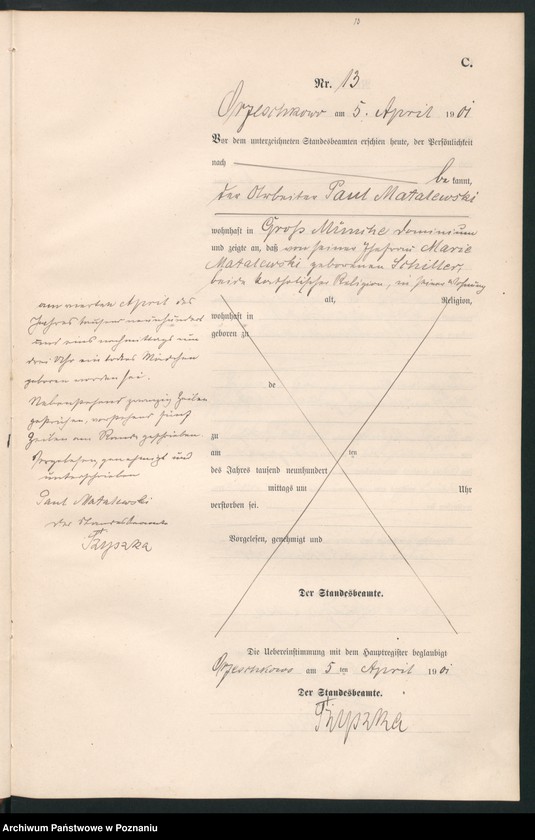 13
C.
Nr. 13
Orzeschkowo am 5. April 1901
Vor dem unterzeichneten Standesbeamten erschien heute, der Persönlichkeit
nach be kannt,
der Arbeiter Paul Matalewski
wohnhaft in Groß Münche Dominium
und zeigte an, daß von seiner Ehefrau Marie
Matalewski geborenen Schiller,
beide katholischer Religion, in seiner Wohnung
am vierten April des
Jahres tausend neunhundert
und eins nachmittags um
drei Uhr ein todtes Mädchen
geboren worden sei.
Nebenstehend zwanzig Zeilen
gestrichen, vorstehend fünf
Zeilen am Rande geschrieben
Vorgelesen, genehmigt und
unterschrieben
Paul Matalewski
Der Standesbeamte
Tzypzka
alt, Religion,
wohnhaft in
geboren zu
de
zu
am ten
des Jahres tausend neunhundert
mittags um Uhr
verstorben sei.
Vorgelesen, genehmigt und
Der Standesbeamte.
Die Uebereinstimmung mit dem Hauptregister beglaubigt
Orzeschkowo am 5 ten April 1901
Der Standesbeamte.
Tzypzka
Archiwum Państwowe w Poznaniu